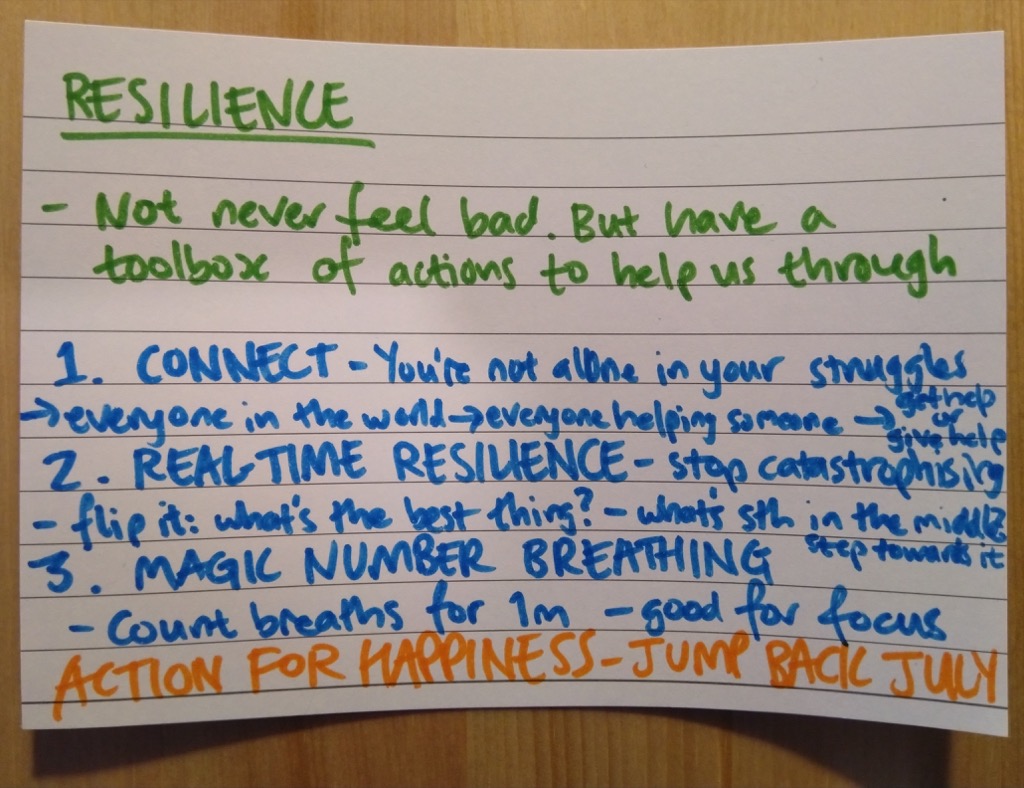 RESILIENCE
- Not never feel bad. But have a
toolbox of actions to help us through
1. CONNECT - You're not alone in your struggles
→ everyone in the world → everyone helping someone → get help or give help
2. REAL TIME RESILIENCE - stop catastrophising
- flip it: what's the best thing? - what's sth in the middle?
step towards it
3. MAGIC NUMBER BREATHING
- Count breaths for 1m - good for focus
ACTION FOR HAPPINESS - JUMP BACK JULY